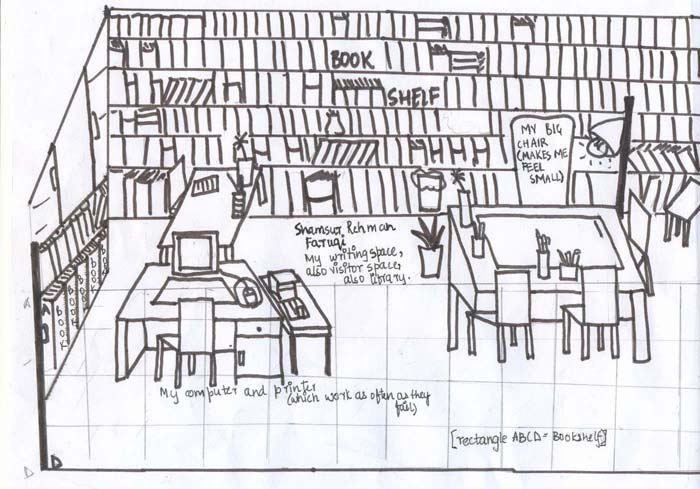 BOOK
SHELF
MY BIG
CHAIR
(MAKES ME
FEEL
SMALL)
Shamsur Rehman
Faruqi
My writing space,
also visitor space,
also library.
A
BOOK
BOOK
BOOK
My computer and printer
(which work as often as they
fail)
[rectangle ABCD = Bookshelf]
D
D